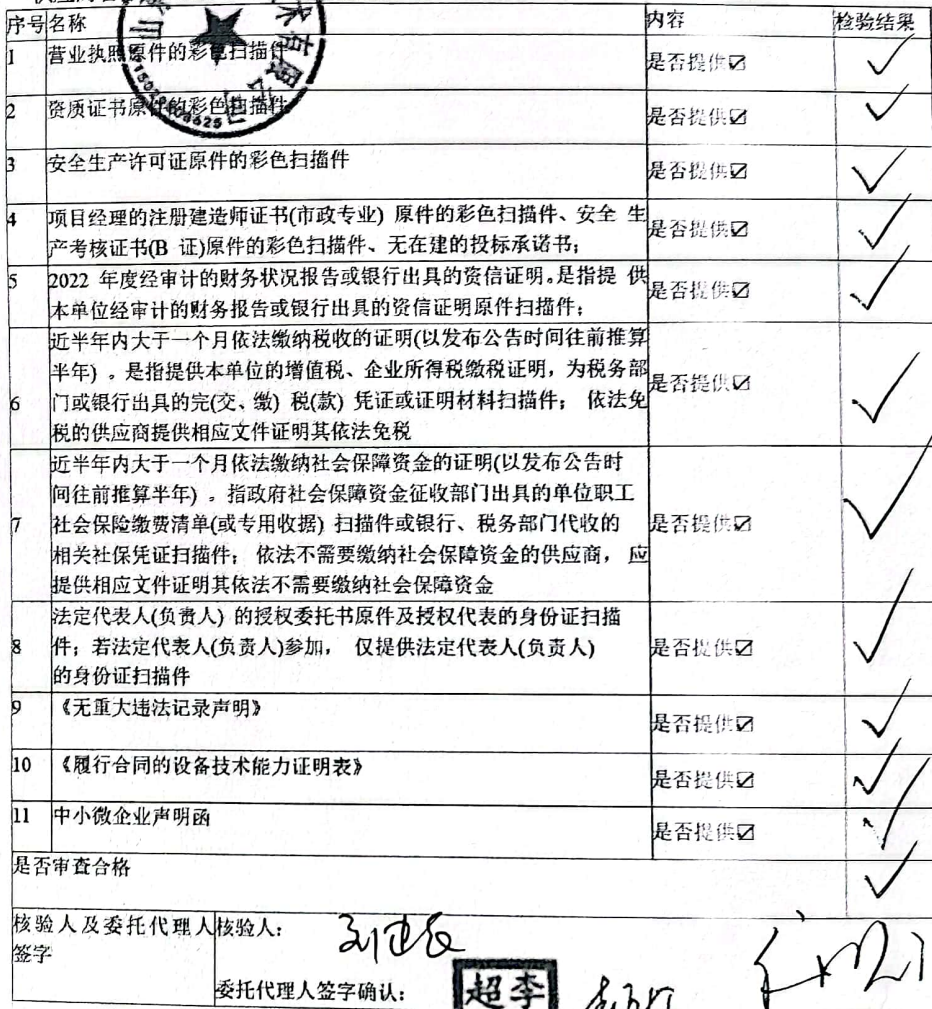 序号 名称 内容 检验结果
1 营业执照原件的彩色扫描件 是否提供☑ ✓
2 资质证书原件的彩色扫描件 是否提供☑ ✓
3 安全生产许可证原件的彩色扫描件 是否提供☑ ✓
4 项目经理的注册建造师证书(市政专业) 原件的彩色扫描件、安全 生
产考核证书(B 证)原件的彩色扫描件、无在建的投标承诺书; 是否提供☑ ✓
5 2022 年度经审计的财务状况报告或银行出具的资信证明。是指提 供
本单位经审计的财务报告或银行出具的资信证明原件扫描件; 是否提供☑ ✓
近半年内大于一个月依法缴纳税收的证明(以发布公告时间往前推算
半年) 。是指提供本单位的增值税、企业所得税缴税证明，为税务部 是否提供☑
6 门或银行出具的完(交、缴) 税(款) 凭证或证明材料扫描件; 依法免 ✓
税的供应商提供相应文件证明其依法免税
近半年内大于一个月依法缴纳社会保障资金的证明(以发布公告时
间往前推算半年) 。指政府社会保障资金征收部门出具的单位职工
7 社会保险缴费清单(或专用收据) 扫描件或银行、税务部门代收的 是否提供☑ ✓
相关社保凭证扫描件; 依法不需要缴纳社会保障资金的供应商， 应
提供相应文件证明其依法不需要缴纳社会保障资金
法定代表人(负责人) 的授权委托书原件及授权代表的身份证扫描
8 件; 若法定代表人(负责人)参加， 仅提供法定代表人(负责人) 是否提供☑ ✓
的身份证扫描件
9 《无重大违法记录声明》 是否提供☑ ✓
10 《履行合同的设备技术能力证明表》 是否提供☑ ✓
11 中小微企业声明函 是否提供☑ ✓
是否审查合格 ✓
核验人及委托代理人 核验人:
签字
委托代理人签字确认: 超李